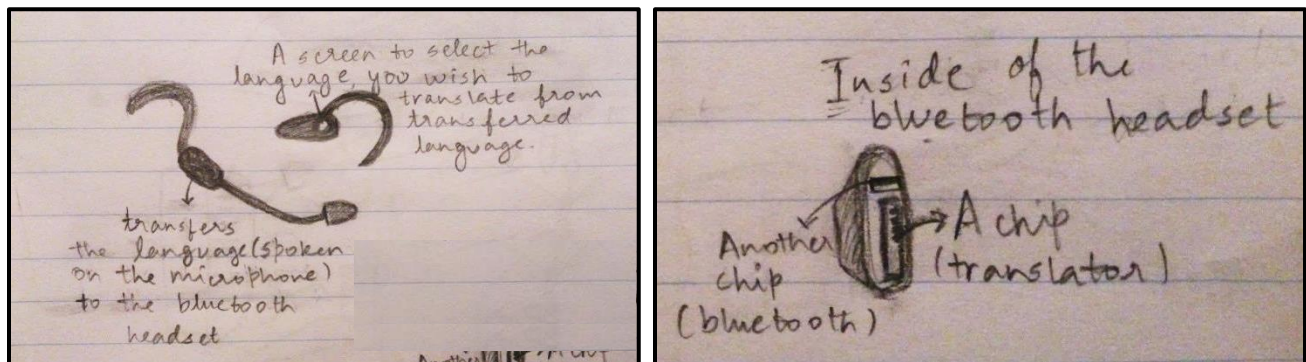 A screen to select the
language, you wish to
translate from
transferred
language.
transfers
the language (spoken
on the microphone)
to the bluetooth
headset
Another
Inside of the
bluetooth headset
Another
chip
(bluetooth)
A chip
(translator)